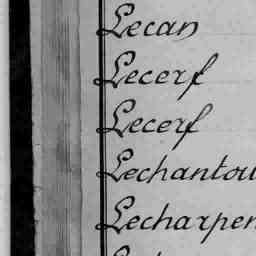 Lecan
Lecerf
Lecerf
Lechantou
Lecharpen